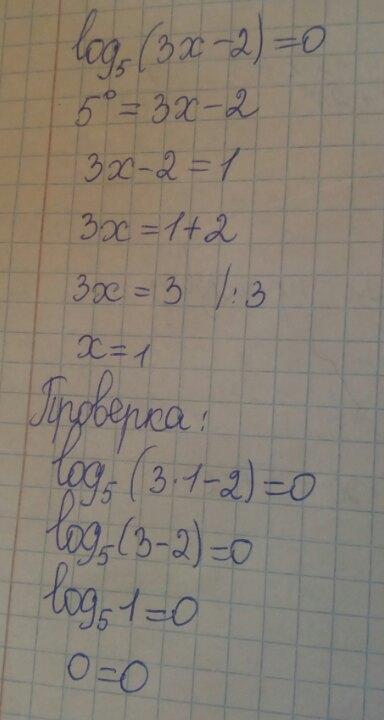 log₅(3x-2)=0
5⁰=3x-2
3x-2=1
3x=1+2
3x=3 /:3
x=1
Проверка:
log₅(3·1-2)=0
log₅(3-2)=0
log₅1=0
0=0